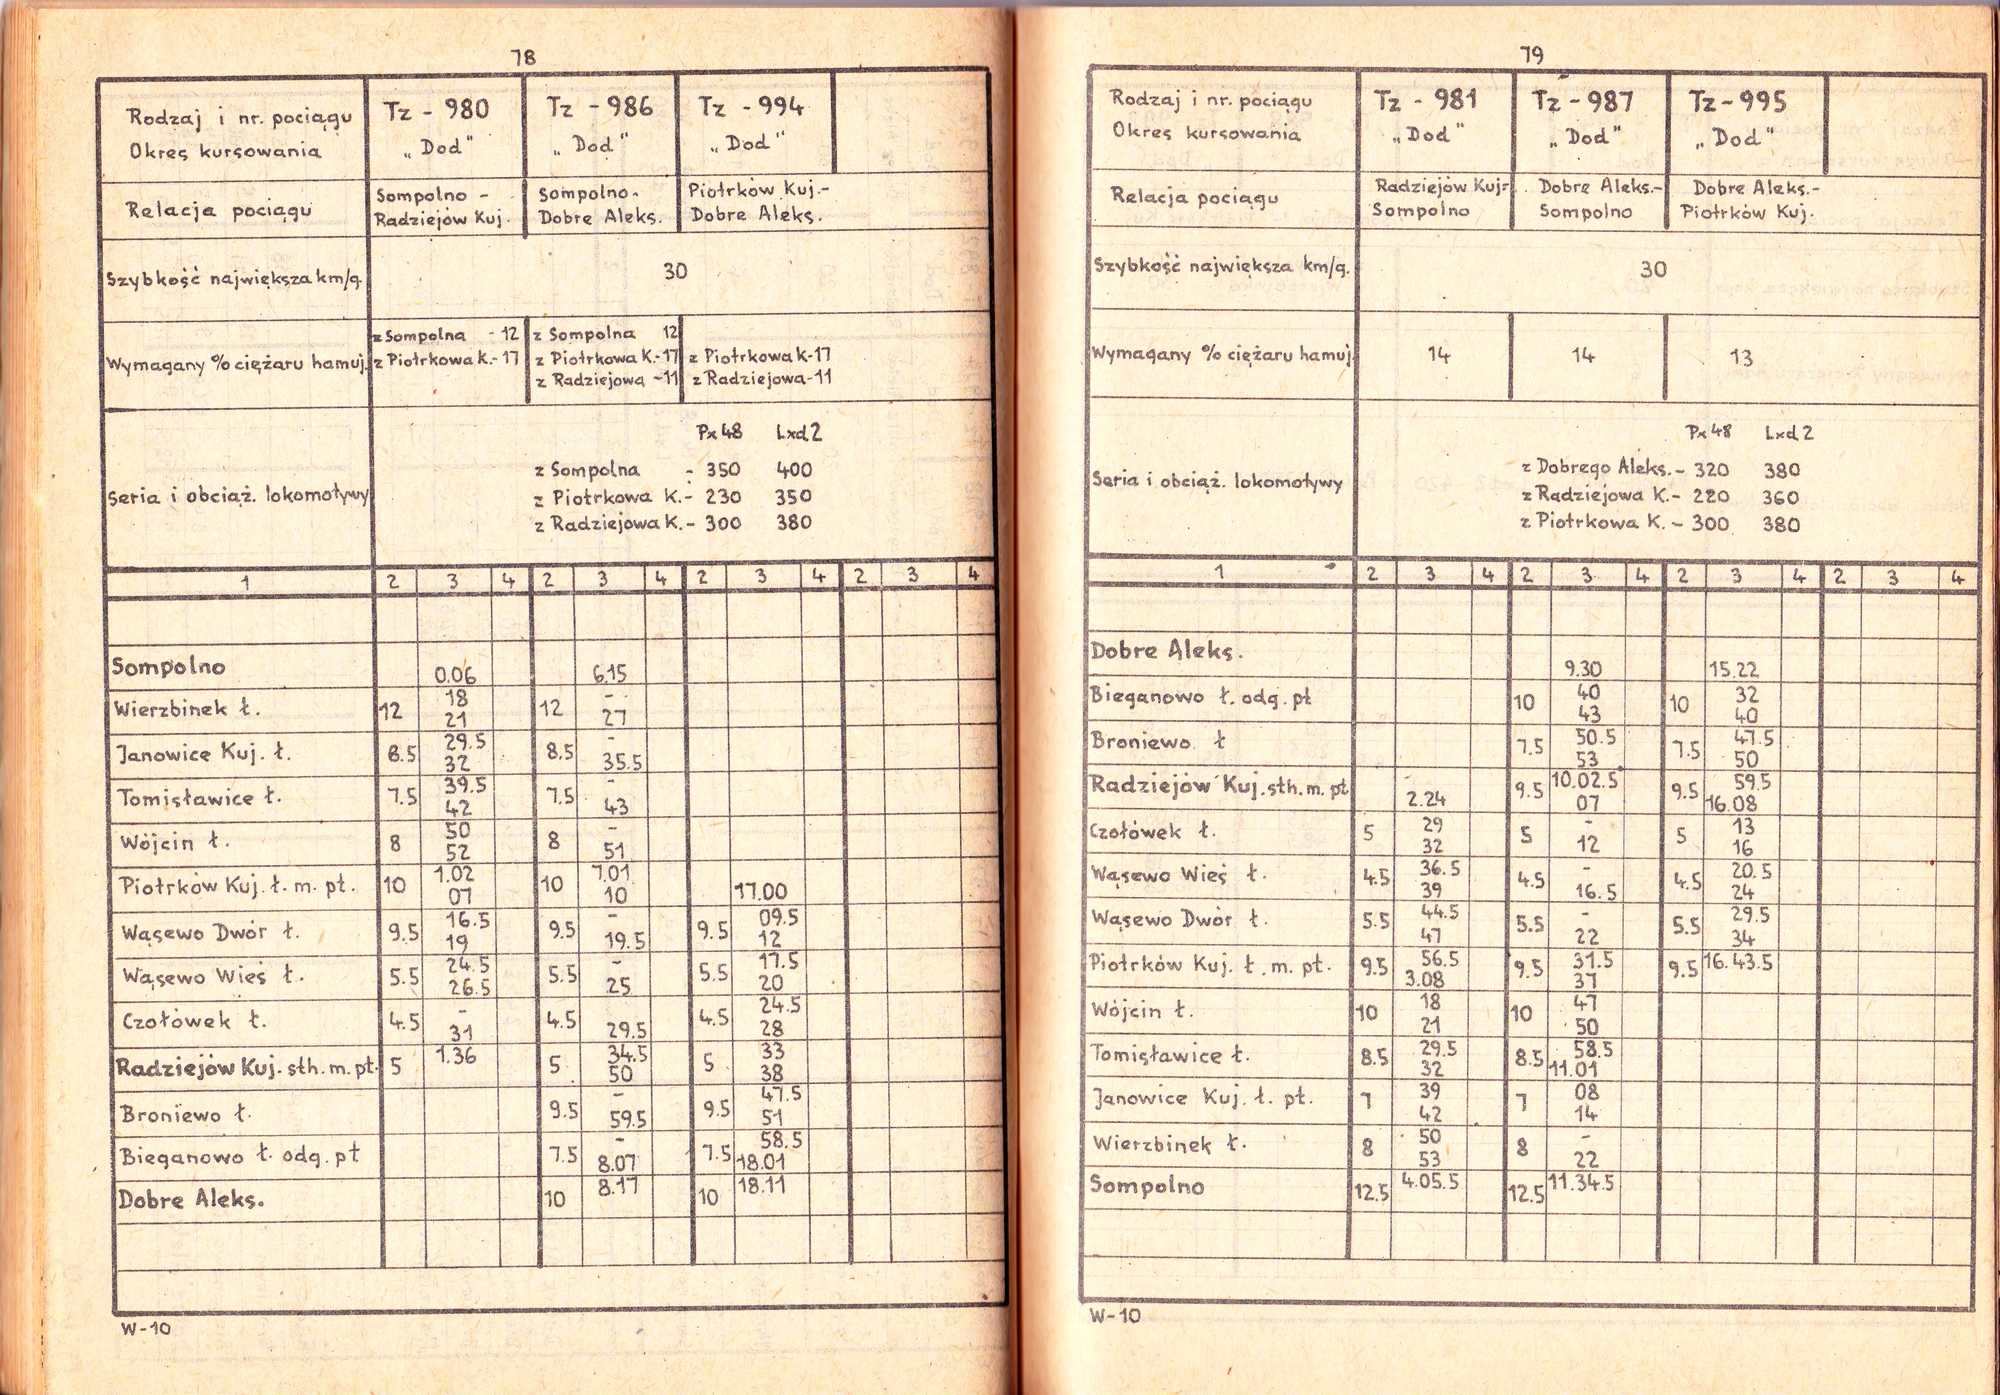 78
Rodzaj i nr. pociągu Tz - 980 Tz - 986 Tz - 994
Okres kursowania „Dod" „Dod" „Dod"
Relacja pociągu Sompolno - Radziejów Kuj. Sompolno - Dobre Aleks. Piotrków Kuj.- Dobre Aleks.
Szybkość największa km/g. 30
Wymagany % ciężaru hamuj. z Sompolna - 12 z Sompolna 12
z Piotrkowa K.- 17 z Piotrkowa K.- 17 z Piotrkowa K-17
z Radziejowa - 11 z Radziejowa - 11
Px48 Lxd2
Seria i obciąż. lokomotywy
z Sompolna - 350 400
z Piotrkowa K.- 230 350
z Radziejowa K.- 300 380
1 2 3 4 2 3 4 2 3 4 2 3 4
Sompolno 0.06 6.15
Wierzbinek ł. 12 18 21 12 - 27
Janowice Kuj. ł. 8.5 29.5 32 8.5 - 35.5
Tomisławice ł. 7.5 39.5 42 7.5 - 43
Wójcin ł. 8 50 52 8 - 51
Piotrków Kuj. ł. m. pt. 10 1.02 07 10 7.01 10 17.00
Wąsewo Dwór ł. 9.5 16.5 19 9.5 - 19.5 9.5 09.5 12
Wąsewo Wieś ł. 5.5 24.5 26.5 5.5 - 25 5.5 17.5 20
Czołówek ł. 4.5 - 31 4.5 29.5 4.5 24.5 28
Radziejów Kuj. sth. m. pt. 5 1.36 5 34.5 50 5 33 38
Broniewo ł. 9.5 - 59.5 9.5 47.5 51
Bieganowo ł. odg. pt 7.5 - 8.07 7.5 58.5 18.01
Dobre Aleks. 10 8.17 10 18.11
W-10
79
Rodzaj i nr. pociągu Tz - 981 Tz - 987 Tz - 995
Okres kursowania „Dod" „Dod" „Dod"
Relacja pociągu Radziejów Kuj- Sompolno Dobre Aleks.- Sompolno Dobre Aleks.- Piotrków Kuj.
Szybkość największa km/g. 30
Wymagany % ciężaru hamuj. 14 14 13
Px48 Lxd2
Seria i obciąż. lokomotywy
z Dobrego Aleks. - 320 380
z Radziejowa K.- 220 360
z Piotrkowa K. - 300 380
1 2 3 4 2 3 4 2 3 4 2 3 4
Dobre Aleks. 9.30 15.22
Bieganowo ł. odg. pt 10 40 43 10 32 40
Broniewo ł 7.5 50.5 53 7.5 47.5 50
Radziejów Kuj. sth. m. pt 2.24 9.5 10.02.5 07 9.5 59.5 16.08
Czołówek ł. 5 29 32 5 - 12 5 13 16
Wąsewo Wieś ł. 4.5 36.5 39 4.5 - 16.5 4.5 20.5 24
Wąsewo Dwór ł. 5.5 44.5 47 5.5 - 22 5.5 29.5 34
Piotrków Kuj. ł. m. pt. 9.5 56.5 3.08 9.5 31.5 37 9.5 16.43.5
Wójcin ł. 10 18 21 10 47 50
Tomisławice ł. 8.5 29.5 32 8.5 58.5 11.01
Janowice Kuj. ł. pt. 7 39 42 7 08 14
Wierzbinek ł. 8 50 53 8 - 22
Sompolno 12.5 4.05.5 12.5 11.34.5
W-10